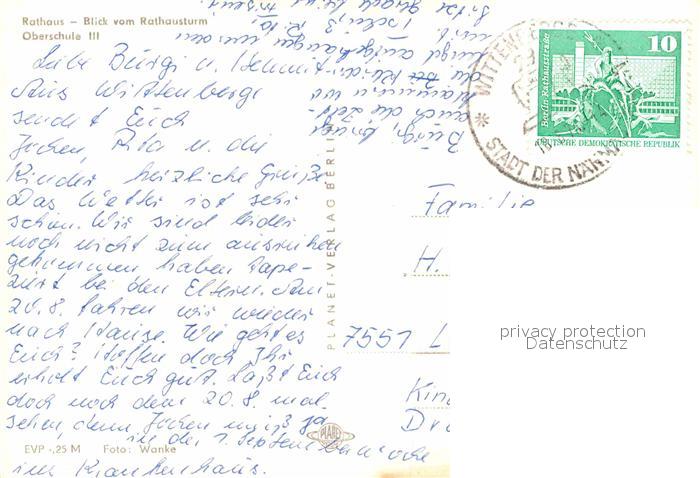 Rathaus – Blick vom Rathausturm
Oberschule III
Liebe Bürgi u. Helmut
Aus Wittenberge
sendt Euch
Jochen, Ria u. die
Kinder herzliche Grüße
Das Wetter ist sehr
schön. Wir sind leider
noch nicht zum ausruhen
gekommen haben Tape-
ziert bei den Eltern. Am
20.8. fahren wir wieder
nach Hause. Wie geht es
Euch? Hoffen doch Ihr
erholt Euch gut. Laßt Euch
doch noch dem 20.8. mal
sehen, denn Jochen muß ja
in der 1. Septemberwoche
ins Krankenhaus.
EVP -,25 M Foto: Wanke
PLANET-VERLAG BERLIN
PLANET
Bürgi,
auch die Zeit
WITTENBERGE
STADT DER NÄHMA
Berlin, Rathausstraße
10
DEUTSCHE DEMOKRATISCHE REPUBLIK
Familie
H.
7551 L
Kin
Dr
privacy protection
Datenschutz